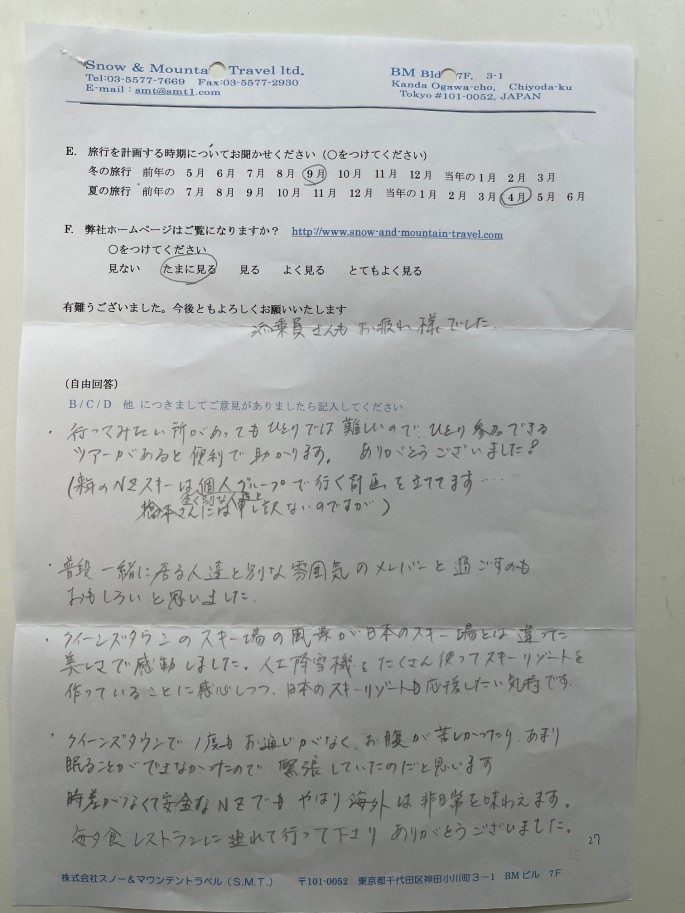 Snow & Mountain Travel ltd.
Tel:03-5577-7669 Fax:03-5577-2930
E-mail : smt@smt1.com
BM Bld 7F, 3-1
Kanda Ogawa-cho, Chiyoda-ku
Tokyo #101-0052, JAPAN
E. 旅行を計画する時期についてお聞かせください（○をつけてください）
冬の旅行 前年の 5月 6月 7月 8月 9月 10月 11月 12月 当年の1月 2月 3月
夏の旅行 前年の 7月 8月 9月 10月 11月 12月 当年の1月 2月 3月 4月 5月 6月
F. 弊社ホームページはご覧になりますか？ http://www.snow-and-mountain-travel.com
○をつけてください
見ない たまに見る 見る よく見る とてもよく見る
有難うございました。今後ともよろしくお願いいたします
添乗員さんもお疲れ様でした.
（自由回答）
B/C/D 他 につきましてご意見がありましたら記入してください
・行ってみたい所があってもひとりでは難しいので、ひとり参加できる
ツアーがあると便利で助かります。 ありがとうございました?
(来年のNZスキーは個人グループで行く計画を立ててます‥‥
全く別な人達と
橋本さんには申し訳ないのですが)
・普段一緒に居る人達と別な雰囲気のメンバーと過ごすのも
おもしろいと思いました.
・クイーンズタウンのスキー場の風景が日本のスキー場とは違った
美しさで感動しました。人工降雪機をたくさん使ってスキーリゾートを
作っていることに感心しつつ、日本のスキーリゾートも応援したい気持です.
・クイーンズタウンで1度もお通じがなく、お腹が苦しかったり、あまり
眠ることができなかったので 緊張していたのだと思います
時差がなくて安全なNZでもやはり海外は非日常を味わえます。
毎夕食レストランに連れて行って下さり ありがとうございました。
29
株式会社スノー＆マウンテントラベル（S.M.T.） 〒101-0052 東京都千代田区神田小川町3－1 BMビル 7F